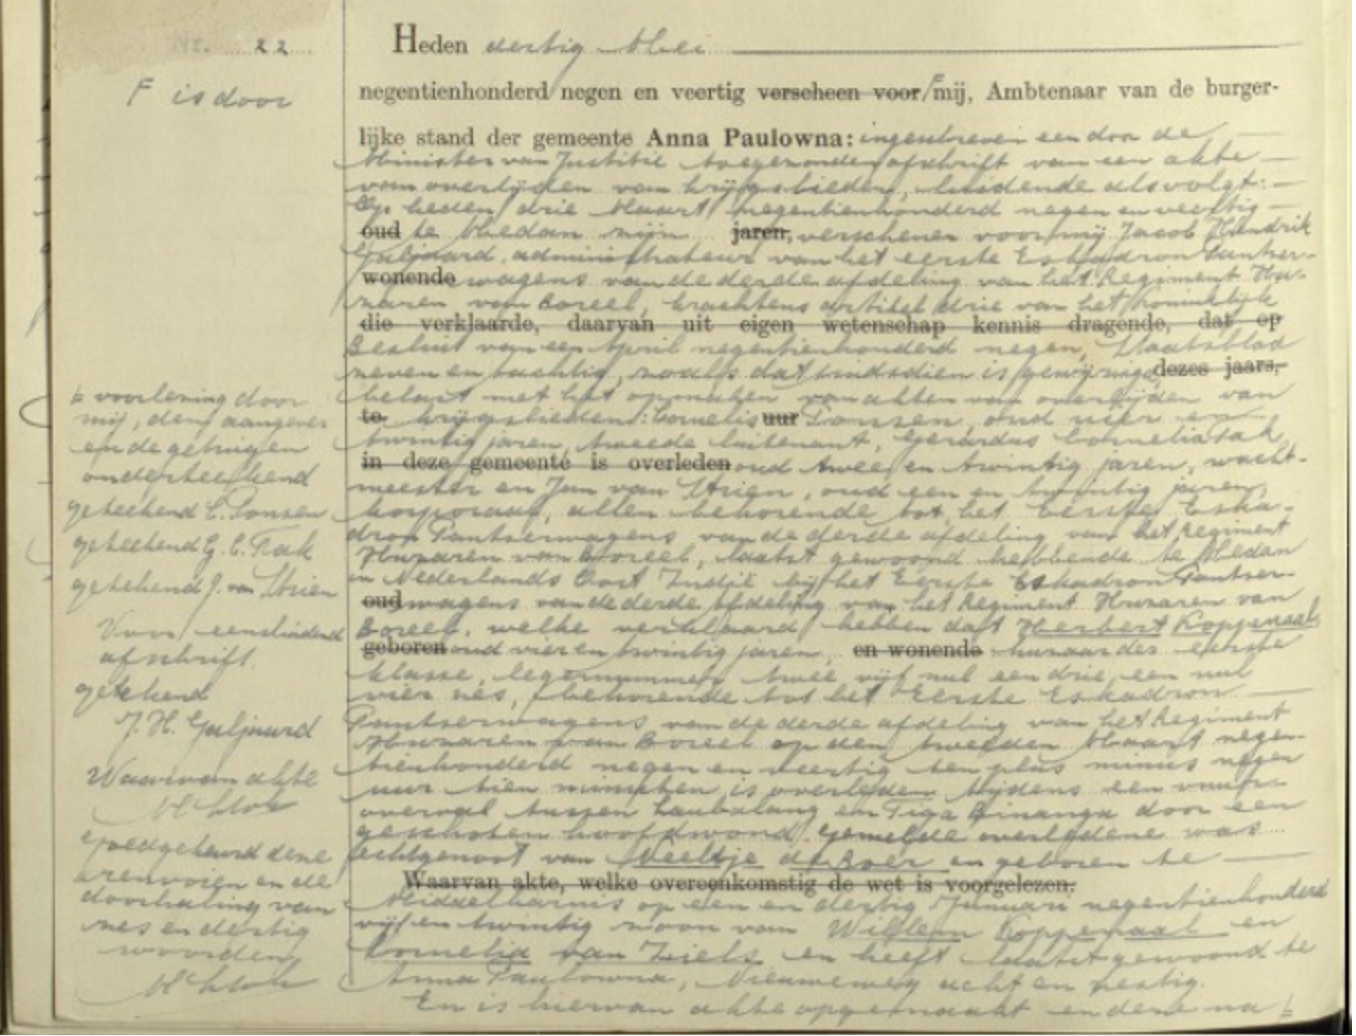 Nr. 22
F is door
Heden dertig Mei
negentienhonderd negen en veertig verscheen voor F mij, Ambtenaar van de burger-
lijke stand der gemeente Anna Paulowna: ingeschreven een door de
Minister van Justitie toegezonden afschrift van een akte
van overlijden van krijgslieden, luidende als volgt:
Op heden drie Maart negentienhonderd negen en veertig
oud te Medan mijn jaren, verschenen voor mij Jacob Hendrik
Guljaard, administrateur van het eerste Eskadron Pantser-
wonende wagens van de derde afdeling van het Regiment Hu-
zaren van Boreel, krachtens artikel drie van het Koninklijk
die verklaarde, daarvan uit eigen wetenschap kennis dragende, dat op
Besluit van een April negentienhonderd negen, Staatsblad
zeven en tachtig, zoals dat sindsdien is gewijzigd dezes jaars,
belast met het opmaken van akten van overlijden van
te krijgslieden: Cornelis uur Ponsen, oud vier en
twintig jaren, tweede luitenant, Gerardus Cornelis Tak,
in deze gemeente is overleden oud twee en twintig jaren, wacht-
meester en Jan van Strien, oud een en twintig jaren,
korporaal, allen behorende tot het Eerste Eska-
dron Pantserwagens van de derde afdeling van het Regiment
Huzaren van Boreel, laatst gewoond hebbende te Medan
in Nederlands Oost Indië bij het Eerste Eskadron Pantser-
oud wagens van de derde afdeling van het Regiment Huzaren van
Boreel, welke verklaard hebben dat Herbert Koppenaal
geboren oud vier en twintig jaren, en wonende huzaar der eerste
klasse, legernummer twee vijf nul een drie een nul
vier zes, behorende tot het Eerste Eskadron
Pantserwagens van de derde afdeling van het Regiment
Huzaren van Boreel op den tweeden Maart negen-
tienhonderd negen en veertig ten plus minus negen
uur tien minuten is overleden tijdens een vuur-
overval tussen Laubalang en Tiga Binanga door een
geschoten hoofdwond. Gemelde overledene was
echtgenoot van Neeltje de Boer en geboren te
Waarvan akte, welke overeenkomstig de wet is voorgelezen,
Middelharnis op een en dertig Januari negentienhonderd
vijf en twintig zoon van Willem Koppenaal en
Cornelia van Ziels en heeft laatst gewoond te
Anna Paulowna, Nieuweweg acht en zestig.
En is hiervan akte opgemaakt en deze na
voorlezing door
mij, den aangever
en de getuigen
ondertekend
getekend C. Ponsen
getekend G. C. Tak
getekend J. van Strien
Voor eensluidend
afschrift.
getekend
J. H. Guljaard
Waarvan akte
goedgekeurd deze
renvooien en de
doorhaling van
zes en dertig
woorden